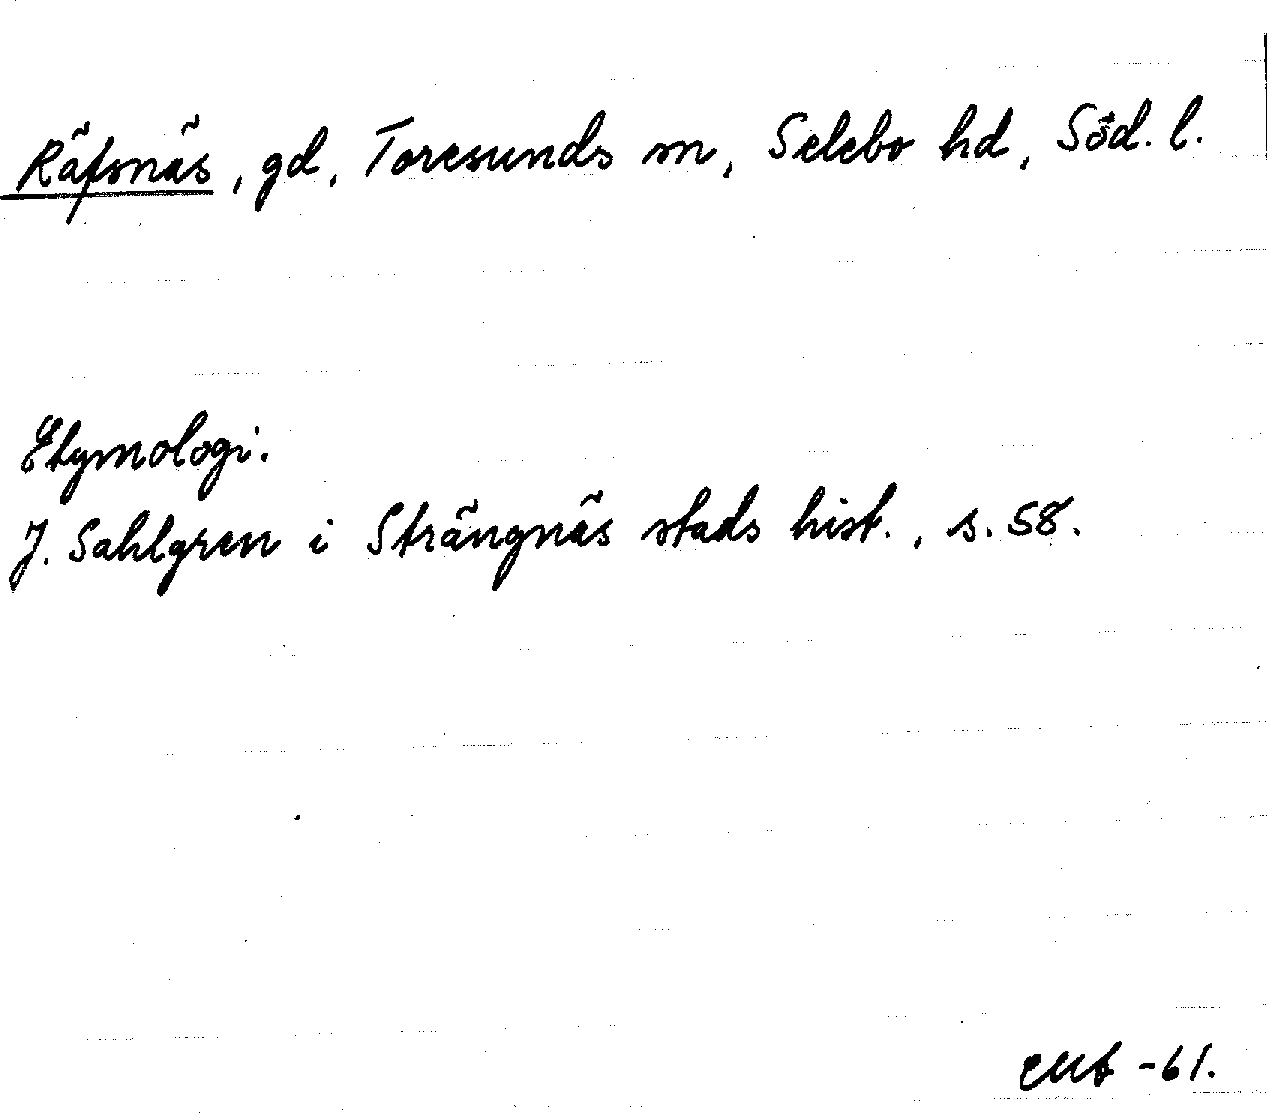 Räfsnäs, gd, Toresunds sn, Selebo hd, Söd. l.
Etymologi.
J. Sahlgren i Strängnäs stads hist., s. 58.
-61.